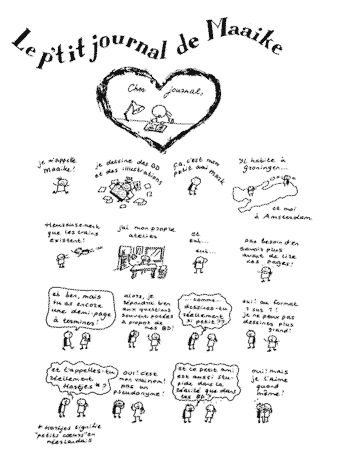 Le p'tit journal de Maaike
Cher journal,
je m'appelle
Maaike!
je dessine des BD
et des illustrations
Ça, c'est mon
petit ami Mark
Il habite à
Groningen...
et moi
à Amsterdam
Heureusement
que les trains
existent!
j'ai mon propre
atelier
et
euh...
euh...
pas besoin d'en
savoir plus
avant de lire
ces pages!
eh ben, mais
tu as encore
une demi-page
à terminer!
alors, je
répondrai bien
aux questions
souvent posées
à propos de
mes BD!
...comme:
dessines-tu
réellement
si petit??
oui! au format
je ne peux pas
dessiner plus
grand!
et t'appelles-tu
réellement
Hartjes*?
oui! c'est
mon vrai nom!
pas un
pseudonyme!
et ce petit ami
est aussi stu-
pide dans la
réalité que dans
tes BD?
oui! mais
je l'aime
quand
même!
* Hartjes signifie
"petits cœurs" en
néerlandais